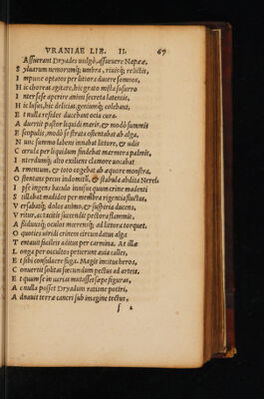 VRANIAE LIB. II. 67
Assuerant Dryades uulgò, assueuere Napeæ,
Syluarum nemorumq; umbra, riuisq; relictis,
Impune optatos per litora ducere somnos,
Hic choreas agitare, hic grato mista susurro
Inter sese aperire animi secreta latentis,
Hic lusus, hic delicias, genium q; colebant,
Et nulla resides ducebant ocia cura.
A ducit pastor liquidi maris, & modò summis
E scopulis, modò se strata ostentabat ab alga,
Nunc summo labens innabat litore, & udis
Cœrula per liquidum findebat marmora palmis,
Interdumq; alto exiliens clamore uocabat
Armentum, & toto cogebat ab æquore monstra,
Ostentans pecus indomitū, & stabula abdita Nerei.
Ipse ingens baculo innixus quum crine madenti
Stillabat madidos per membra rigentia fluctus,
Versabatq; dolos animo, & suspiria ducens,
Vritur, ac tacitis succendit pectora flammis,
Assiduusq; oculis immerens, ad litora torquet.
Quoties uiridi crinem circundatus alga
Tentauit faciles aditus per carmina. At illæ
Longa per occultos petierunt auia calles,
Et sibi consuluere fuga. Magis incitus heros,
Conuertit sobitas succendum pectus ad arteis,
Et quum se in uarias mutasset sæpe figuras,
A c nulla posset Dryadum ratione potiri,
Adnauit terræ cancri sub imagine tectus,